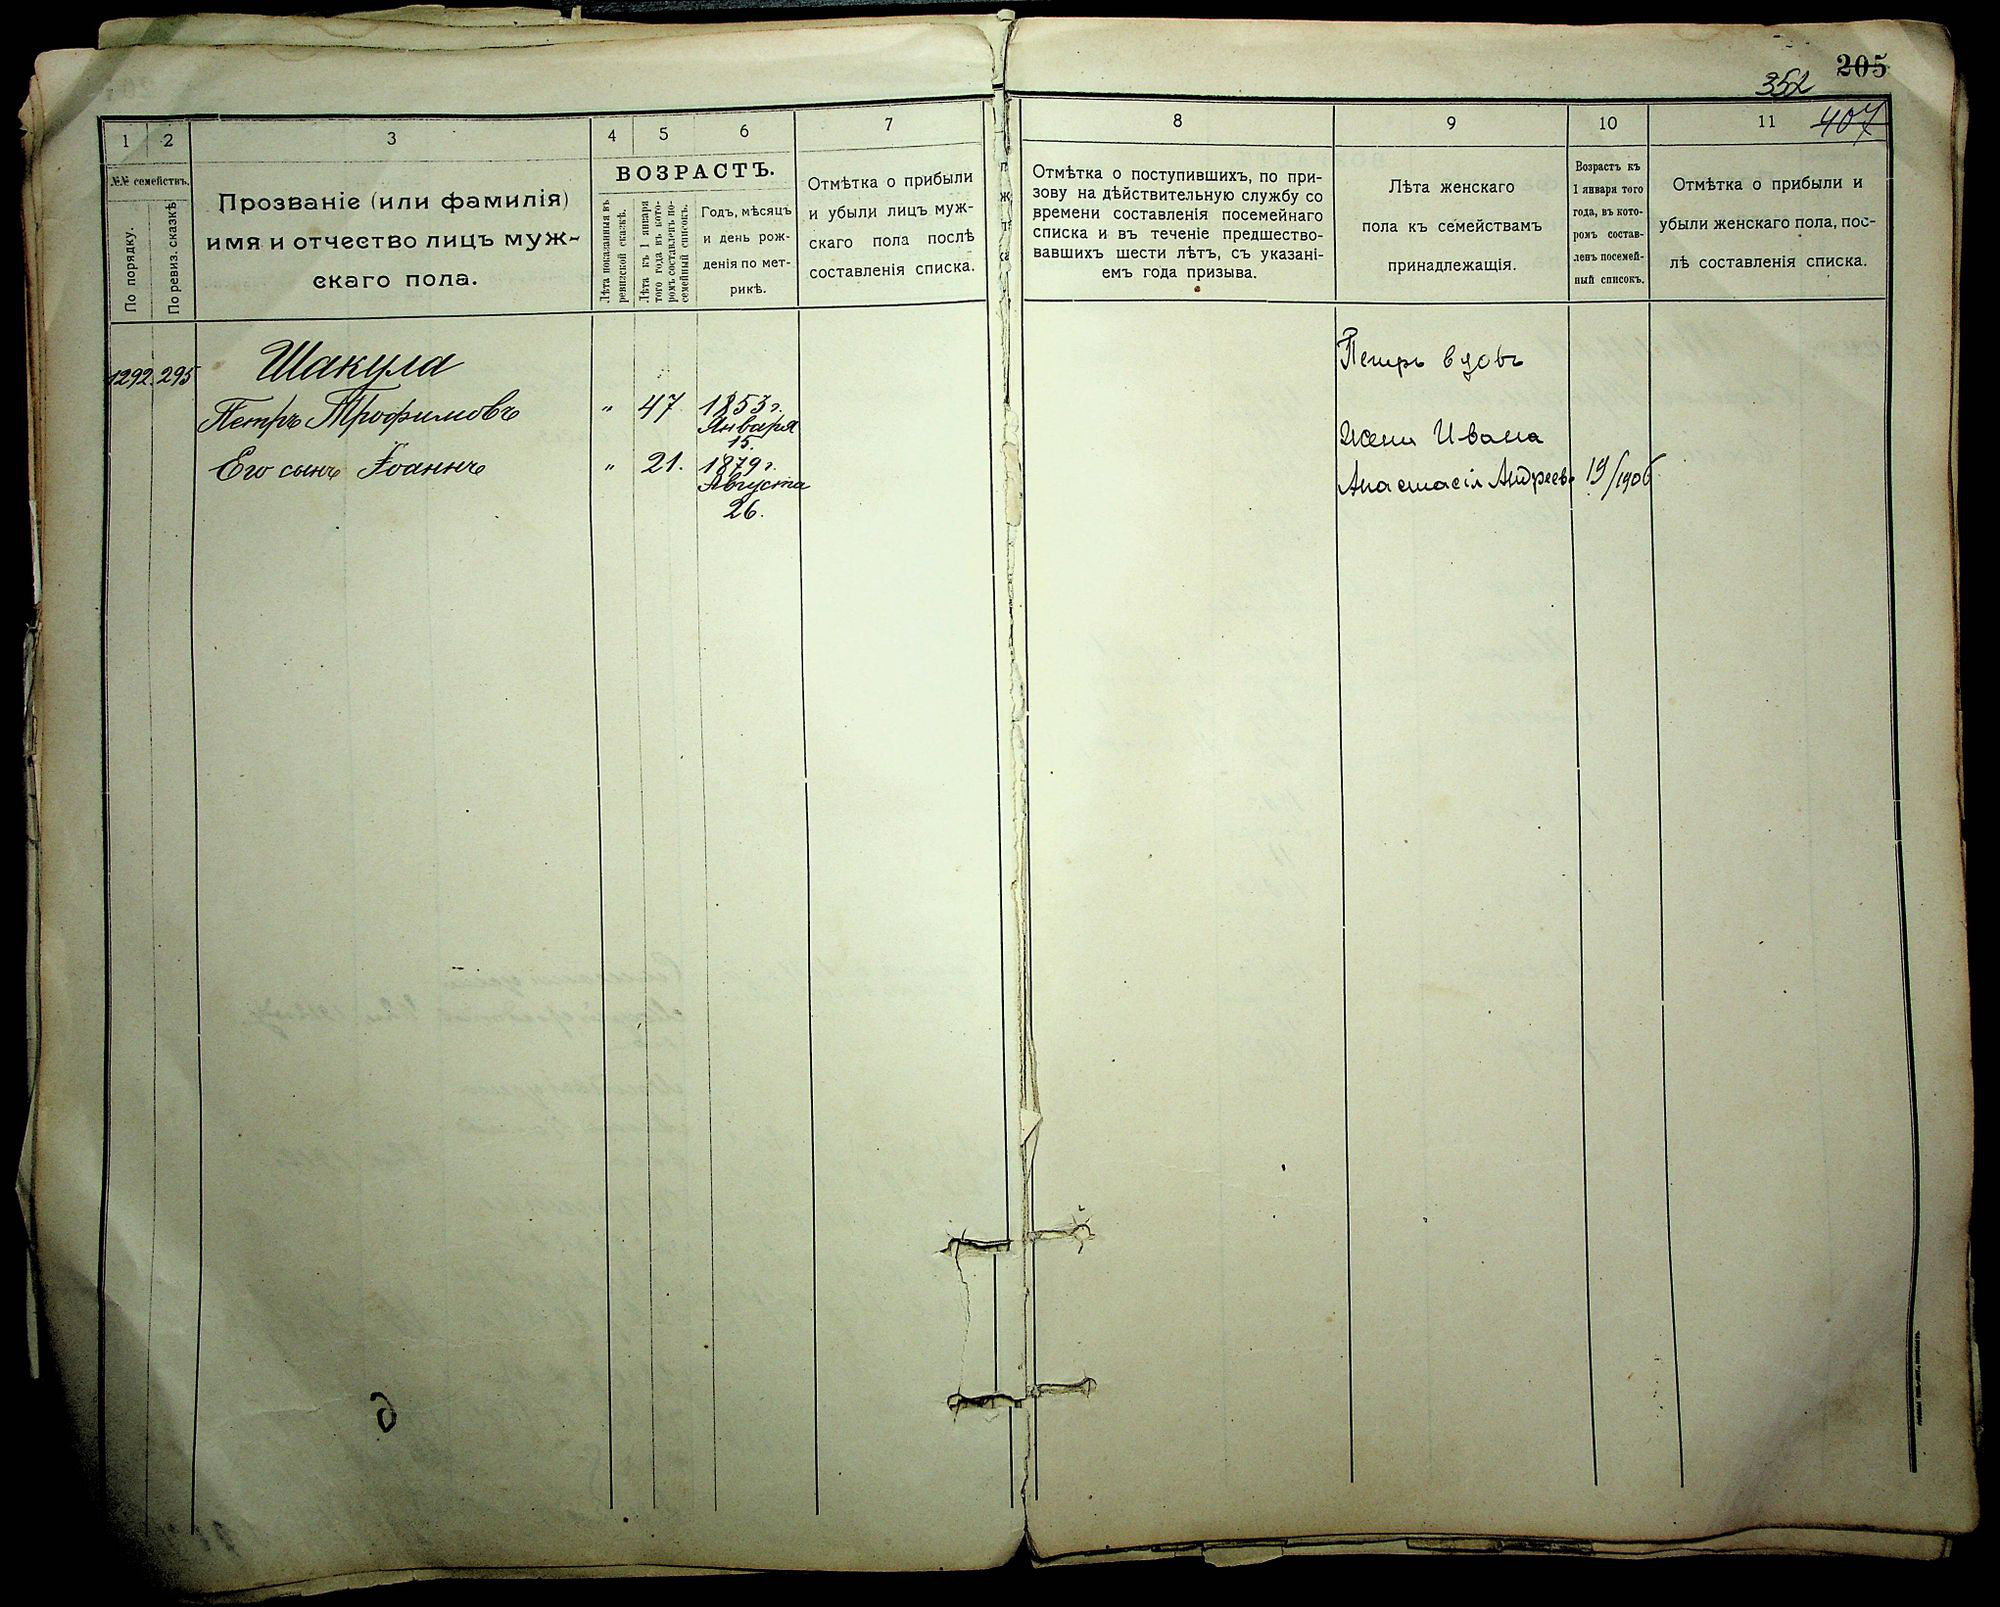 205
352
407
1
2
3
4
5
6
7
№№ семействъ.
По порядку.
По ревиз. сказкѣ
Прозваніе (или фамилія)
имя и отчество лицъ муж-
скаго пола.
ВОЗРАСТЪ.
Лѣта показанныя въ
ревизской сказкѣ.
Лѣта къ 1 января
того года въ кото-
ромъ составленъ по-
семейный списокъ.
Годъ, мѣсяцъ
и день рож-
денія по мет-
рикѣ.
Отмѣтка о прибыли
и убыли лицъ муж-
скаго пола послѣ
составленія списка.
8
9
10
11
Отмѣтка о поступившихъ, по при-
зову на дѣйствительную службу со
времени составленія посемейнаго
списка и въ теченіе предшество-
вавшихъ шести лѣтъ, съ указані-
емъ года призыва.
Лѣта женскаго
пола къ семействамъ
принадлежащія.
Возрастъ къ
1 января того
года, въ кото-
ромъ состав-
ленъ посемей-
ный списокъ.
Отмѣтка о прибыли и
убыли женскаго пола, пос-
лѣ составленія списка.
1292. 295 Шакула
Петръ Трофимовъ " 47 1853 г.
Января
15.
Его сынъ Іоаннъ " 21. 1879 г.
Августа
26.
Петръ вдовъ
жена Ивана
Анастасія Андреева 19/1906
6